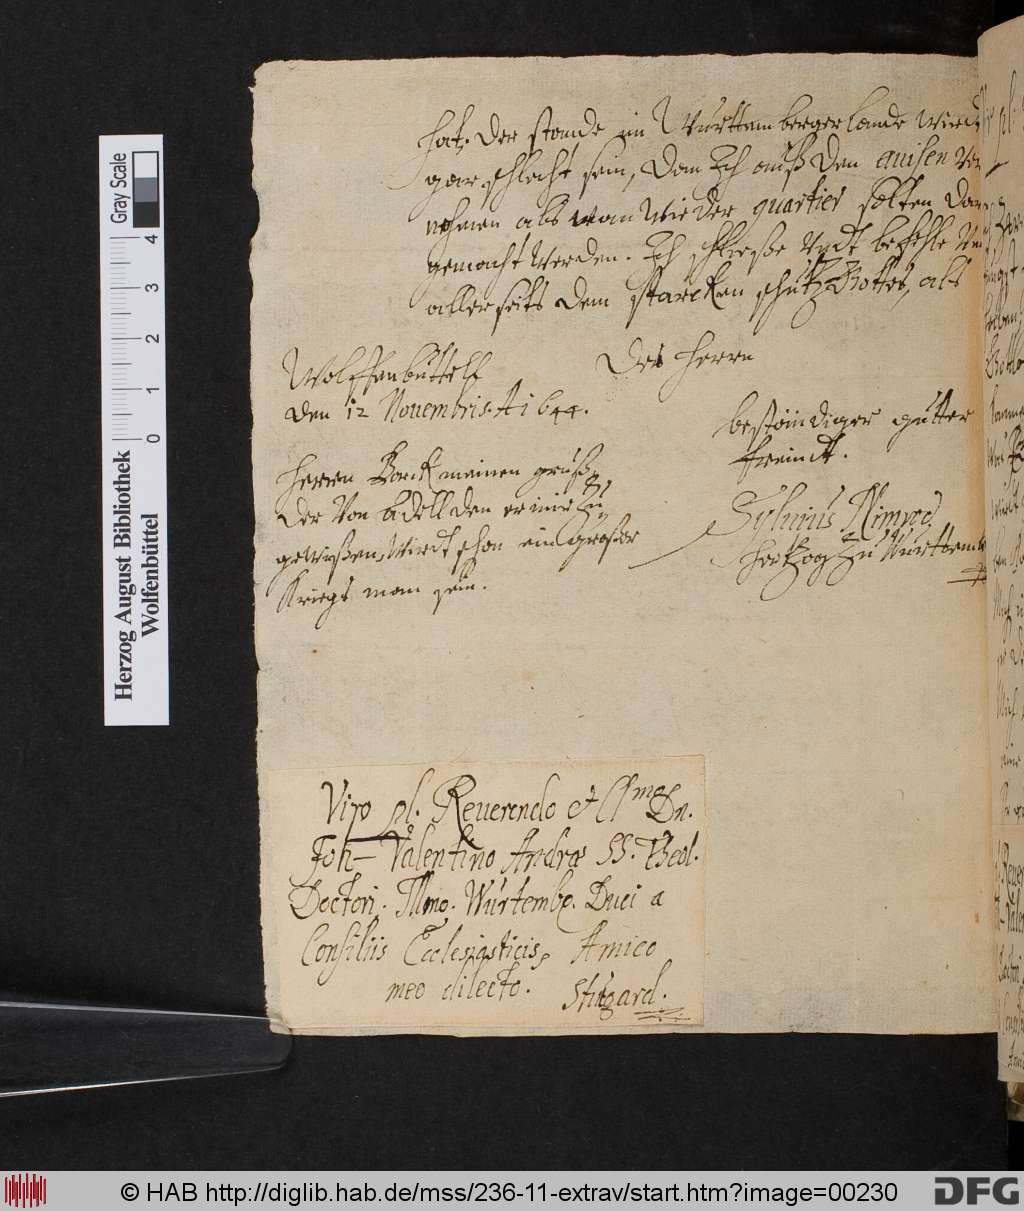 hat. der stande im Württembergerlande wird
gar schlecht sein, dan Ich auß den auisen ver
nohmen als wan wieder quartier solten dar
gemacht werden. Ich schließe undt befehle
allerseits dem starcken schutz Gottes, als
Wolffenbüttell
den 12 Nouembris A 1644.
Des Herren
beständiger gutter
freindt.
Syluius Nimrod
Hertzog zu Württemb
Herren meinen gruß
der von adell den er mir zu
gewißen, wirdt schon ein großer
Kriegs man sein.
Viro pl. Reuerendo et Clmo Dn.
Joh- Valentino Andræ SS. Theol.
Doctori. Illmo. Würtembe. Duci a
Consiliis Ecclesiasticis, Amico
meo dilecto. Stutgard.
Gray Scale
4
3
2
1
0
Herzog August Bibliothek
Wolfenbüttel
© HAB http://diglib.hab.de/mss/236-11-extrav/start.htm?image=00230
DFG